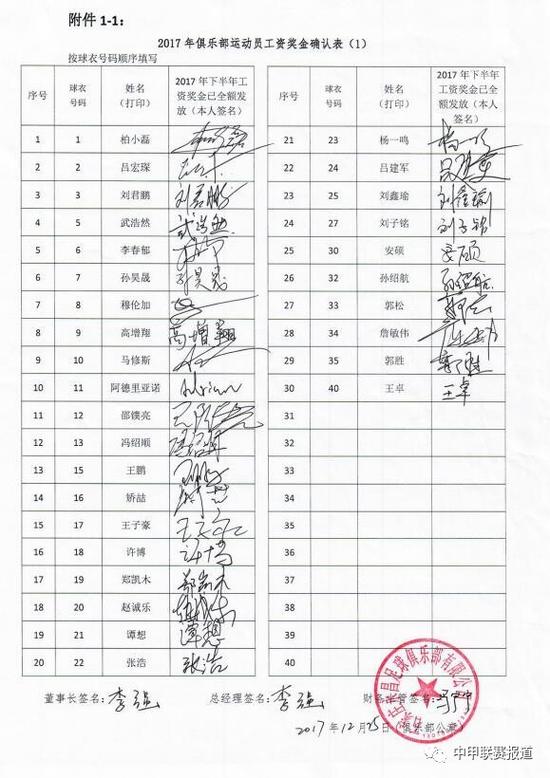 附件 1-1：
2017 年俱乐部运动员工资奖金确认表（1）
按球衣号码顺序填写
序号 球衣号码 姓名（打印） 2017 年下半年工资奖金已全额发放（本人签名） 序号 球衣号码 姓名（打印） 2017 年下半年工资奖金已全额发放（本人签名）
1 1 柏小磊 21 23 杨一鸣 杨一鸣
2 2 吕宏琛 22 24 吕建军 吕建军
3 3 刘君鹏 刘君鹏 23 25 刘鑫瑜 刘鑫瑜
4 5 武浩然 武浩然 24 27 刘子铭 刘子铭
5 6 李春郁 25 30 安硕 安硕
6 7 孙昊晟 孙昊晟 26 32 孙绍航 孙绍航
7 8 穆伦加 27 33 郭松 郭松
8 9 高增翔 高增翔 28 34 詹敏伟
9 10 马修斯 29 35 郭胜 郭胜
10 11 阿德里亚诺 Adriano 30 40 王卓 王卓
11 12 邵镤亮 31
12 13 冯绍顺 冯绍顺 32
13 15 王鹏 33
14 16 矫喆 34
15 17 王子豪 35
16 18 许博 许博 36
17 19 郑凯木 郑凯木 37
18 20 赵诚乐 38
19 21 谭想 谭想 39
20 22 张浩 张浩 40
董事长签名：李强 总经理签名：李强 财务主管签名：
2017年12月25日（俱乐部公章）
中甲联赛报道